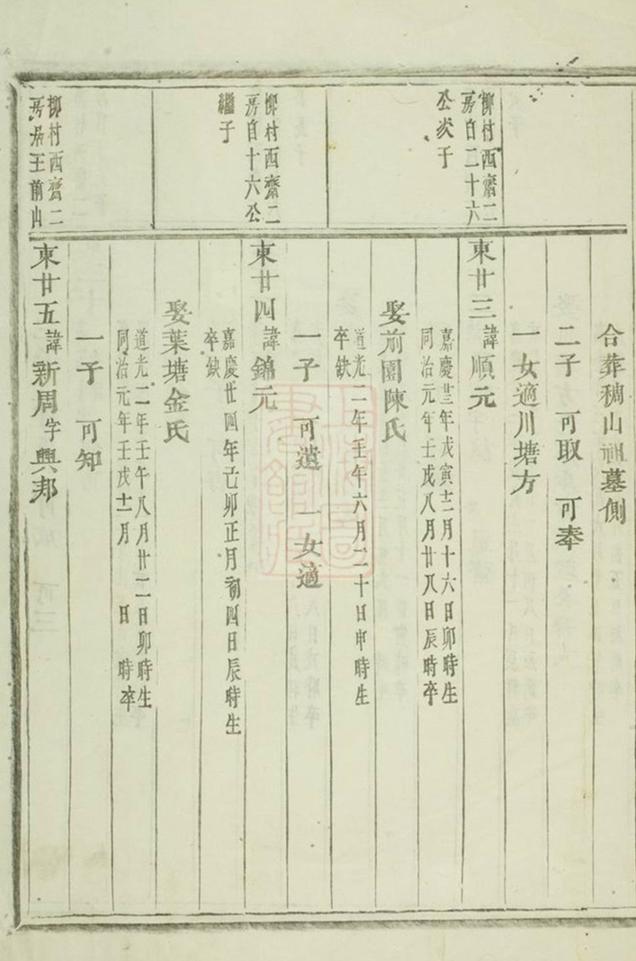 合葬稠山祖墓側
二子 可取 可奉
一女適川塘方
柳村西齋二
房自二十六
公次子
東廿三諱順元
嘉慶廿三年戊寅十二月十六日卯時生
同治元年壬戌八月廿八日辰時卒
娶前園陳氏
道光二年壬午六月二十日申時生
卒缺
一子 可遠 一女適
柳村西齋二
房自十六公
繼子
東廿四諱錦元
嘉慶廿四年己卯正月初四日辰時生
卒缺
娶葉塘金氏
道光二年壬午八月廿二日卯時生
同治元年壬戌十二月 日 時卒
一子 可知
柳村西齋二
房居王前山
東廿五諱新周字興邦